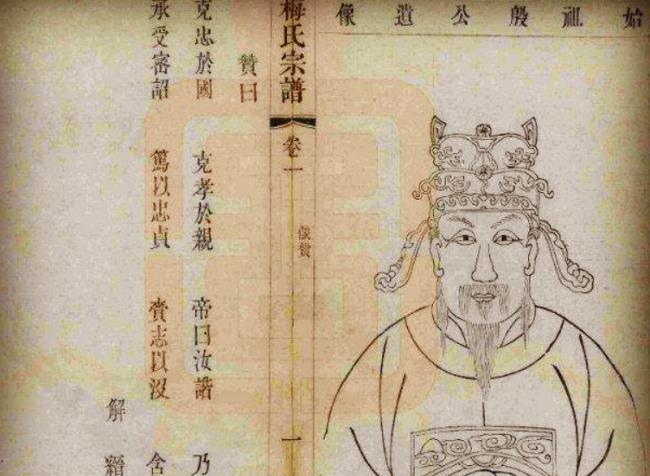 始祖殷公遺像
梅氏宗譜 卷一 像贊 一
贊曰
克忠於國 克孝於親 帝曰汝諧 乃
承受密詔 篤以忠貞 賫志以沒 含
解縉